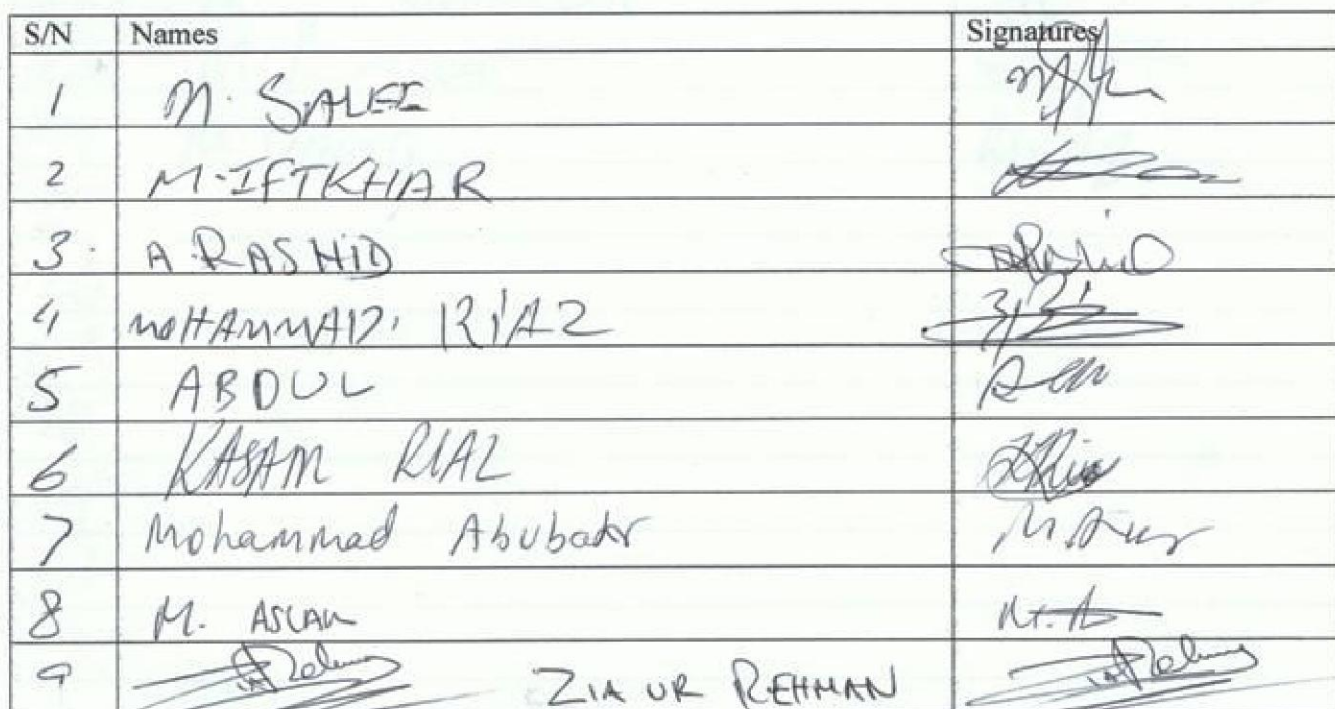 S/N Names Signatures
1 M. SALEE
2 M. IFTKHAR
3. A RASHID ARashid
4 MOHAMMAD. RIAZ
5 ABDUL
6 KASAM RIAZ
7 Mohammad Abubakr
8 M. ASLAM
9 ZIA UR REHMAN